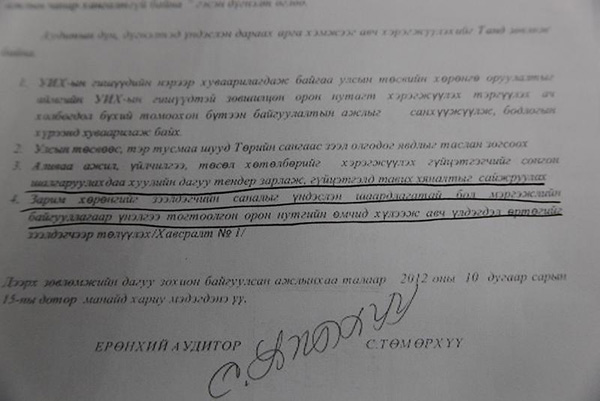 ажлын чанар хангалтгүй байна " гэсэн дүгнэлт өглөө.
Аудитын дүн, дүгнэлтэд үндэслэн дараах арга хэмжээг авч хэрэгжүүлэхийг Танд зөвлөж
байна.
1. УИХ-ын гишүүдийн нэрээр хуваарилагдаж байгаа улсын төсвийн хөрөнгө оруулалтыг
аймгийн УИХ-ын гишүүдтэй зөвшилцөн орон нутагт хэрэгжүүлэх тэргүүлэх ач
холбогдол бүхий томоохон бүтээн байгуулалтын ажлыг санхүүжүүлж, бодлогын
хүрээнд хуваарилаж байх
2. Улсын төсвөөс, тэр тусмаа шууд Төрийн сангаас зээл олгодог явдлыг таслан зогсоох
3. Аливаа ажил, үйлчилгээ, төсөл хөтөлбөрийг хэрэгжүүлэх гүйцэтгэгчийг сонгон
шалгаруулахдаа хуулийн дагуу тендер зарлаж, гүйцэтгэлд тавих хяналтыг сайжруулах
4. Зарим хөрөнгийг зээлдэгчийн саналыг үндэслэн шаардлагатай бол мэргэжлийн
байгууллагаар үнэлгээ тогтоолгон орон нутгийн өмчид хүлээж авч үлдэгдэл өртөгийг
зээлдэгчээр төлүүлэх/Хавсралт № 1/
Дээрх зөвлөмжийн дагуу зохион байгуулсан ажлынхаа талаар 2012 оны 10 дугаар сарын
15-ны дотор манайд хариу мэдэгдэнэ үү.
ЕРӨНХИЙ АУДИТОР С.ТӨМӨРХҮҮ